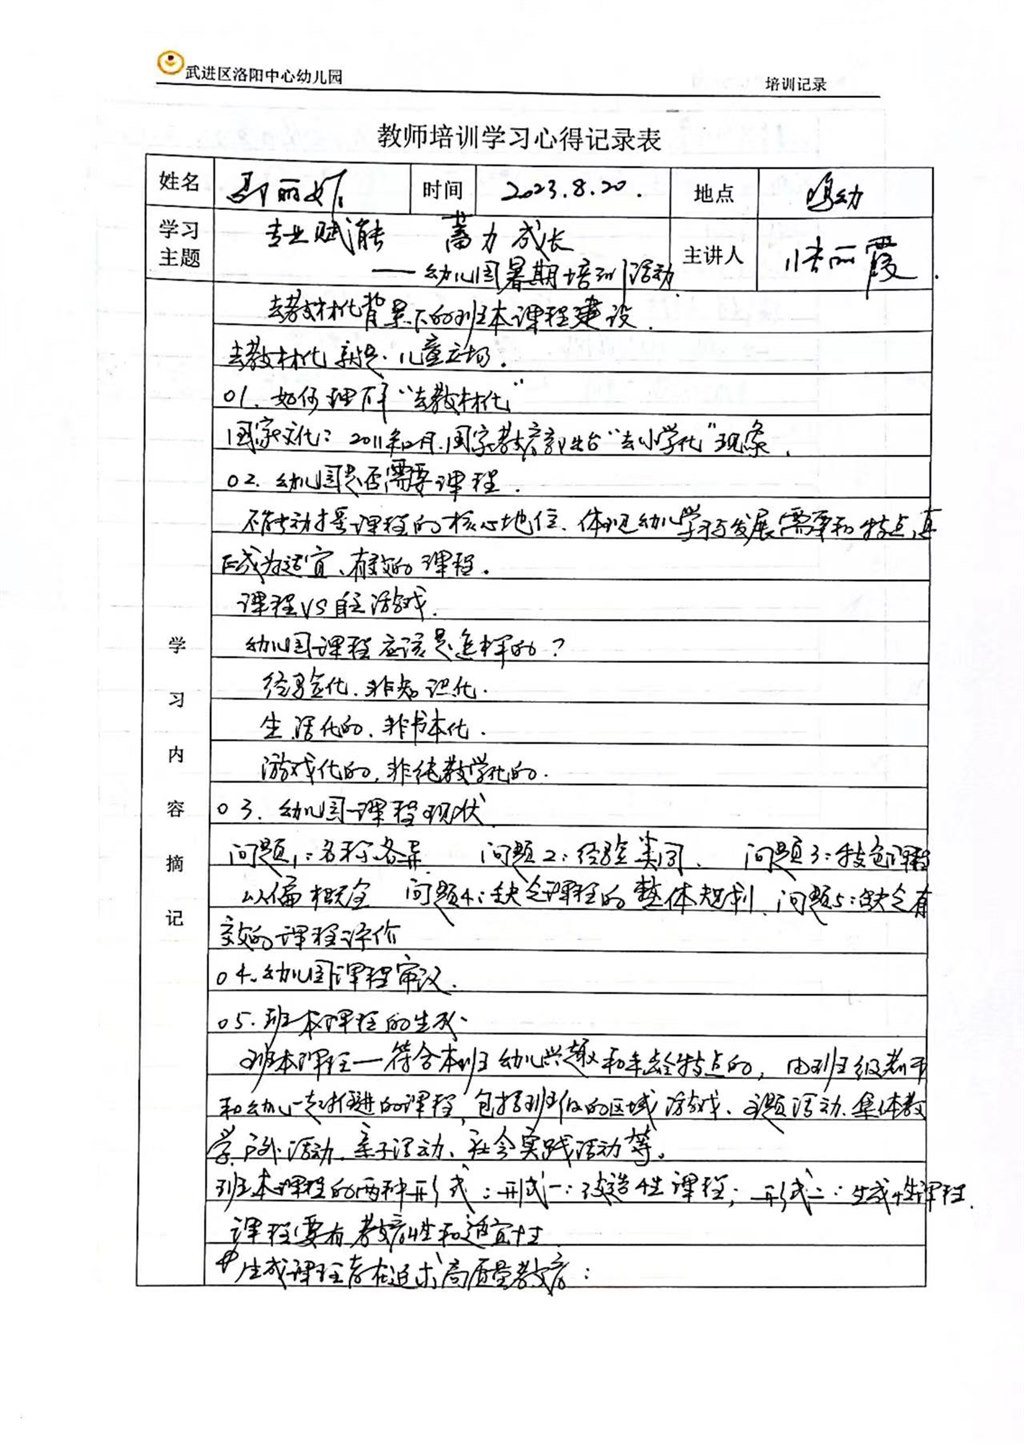 武进区洛阳中心幼儿园
培训记录
教师培训学习心得记录表
姓名 丽 时间 2023.8.20. 地点 鸣幼
学习主题 专业赋能 蓄力成长
——幼儿园暑期培训活动 主讲人 张丽霞.
学习内容摘记
去教材化背景下的班本课程建设.
去教材化就是儿童立场.
01. 如何理解“去教材化”
国家文化: 2011年12月.国家教育部出台“去小学化”现象.
02. 幼儿园是否需要课程.
不能动摇课程的核心地位.体现幼儿学习与发展需要和特点,真
正成为适宜、有效的课程.
课程VS自主游戏.
幼儿园课程应该是怎样的?
经验化.非知识化.
生活化的.非书本化.
游戏化的,非纯教学化的.
03. 幼儿园课程现状
问题1:名称各异 问题2:经验类同. 问题3:特色课程
以偏概全 问题4:缺乏课程的整体规划.问题5:缺乏有
效的课程评价
04.幼儿园课程审议.
05.班本课程的生成.
班本课程—符合本班幼儿兴趣和年龄特点的,由班级教师
和幼儿一起推进的课程,包括班级的区域游戏、主题活动.集体教
学.户外活动.亲子活动、社会实践活动等。
班本课程的两种形式:形式一:改造性课程; 形式二:生成性课程.
课程要有教育性和适宜性
生成课程存在追求高质量教育: